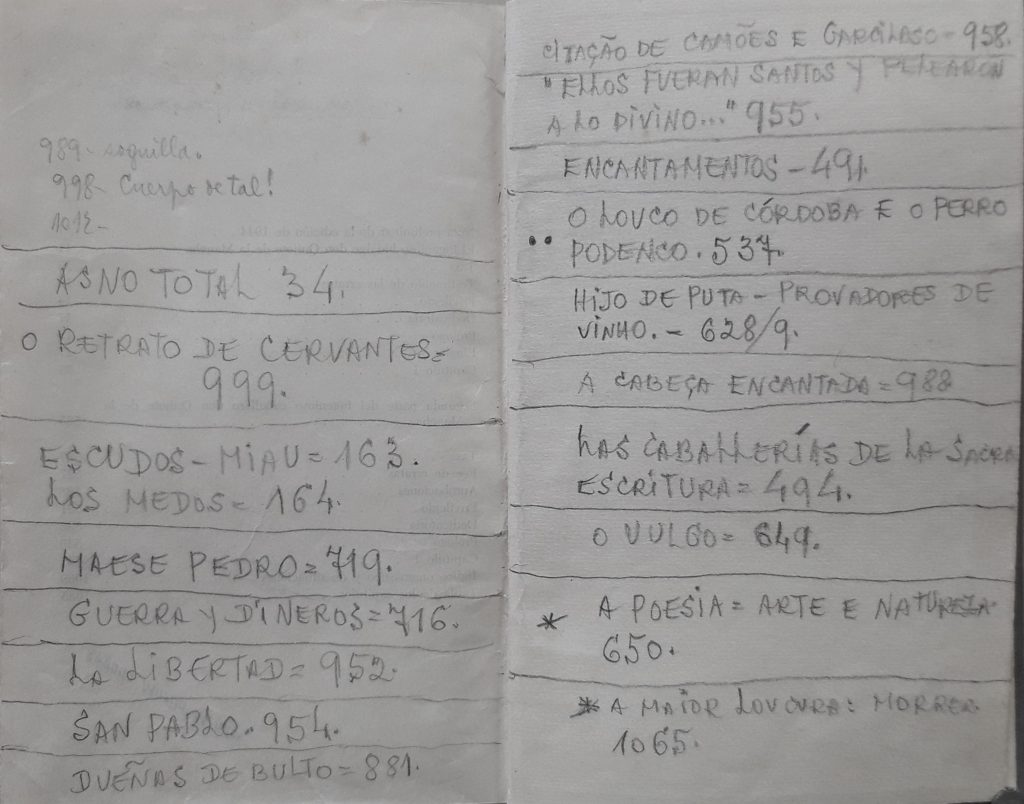 989- soguilla.
998- Cuerpo de tal!
1012-
ASNO TOTAL 34.
O RETRATO DE CERVANTES=
999.
ESCUDOS-MIAU=163.
LOS MEDOS=164.
MAESE PEDRO=719.
GUERRA Y DINEROS=716.
LA LIBERTAD=952.
SAN PABLO.954.
DUEÑAS DE BULTO=881.
CITAÇÃO DE CAMÕES E GARCILASO-958.
"ELLOS FUERAN SANTOS Y PELEARON
A LO DIVINO..." 955.
ENCANTAMENTOS-491.
O LOUCO DE CÓRDOBA E O PERRO
PODENCO. 537.
HIJO DE PUTA - PROVADORES DE
VINHO. - 628/9.
A CABEÇA ENCANTADA=988
LAS CABALLERÍAS DE LA SACRA
ESCRITURA=494.
O VULGO=649.
* A POESIA= ARTE E NATUREZA.
650.
* A MAIOR LOUCURA: MORRER.
1065.